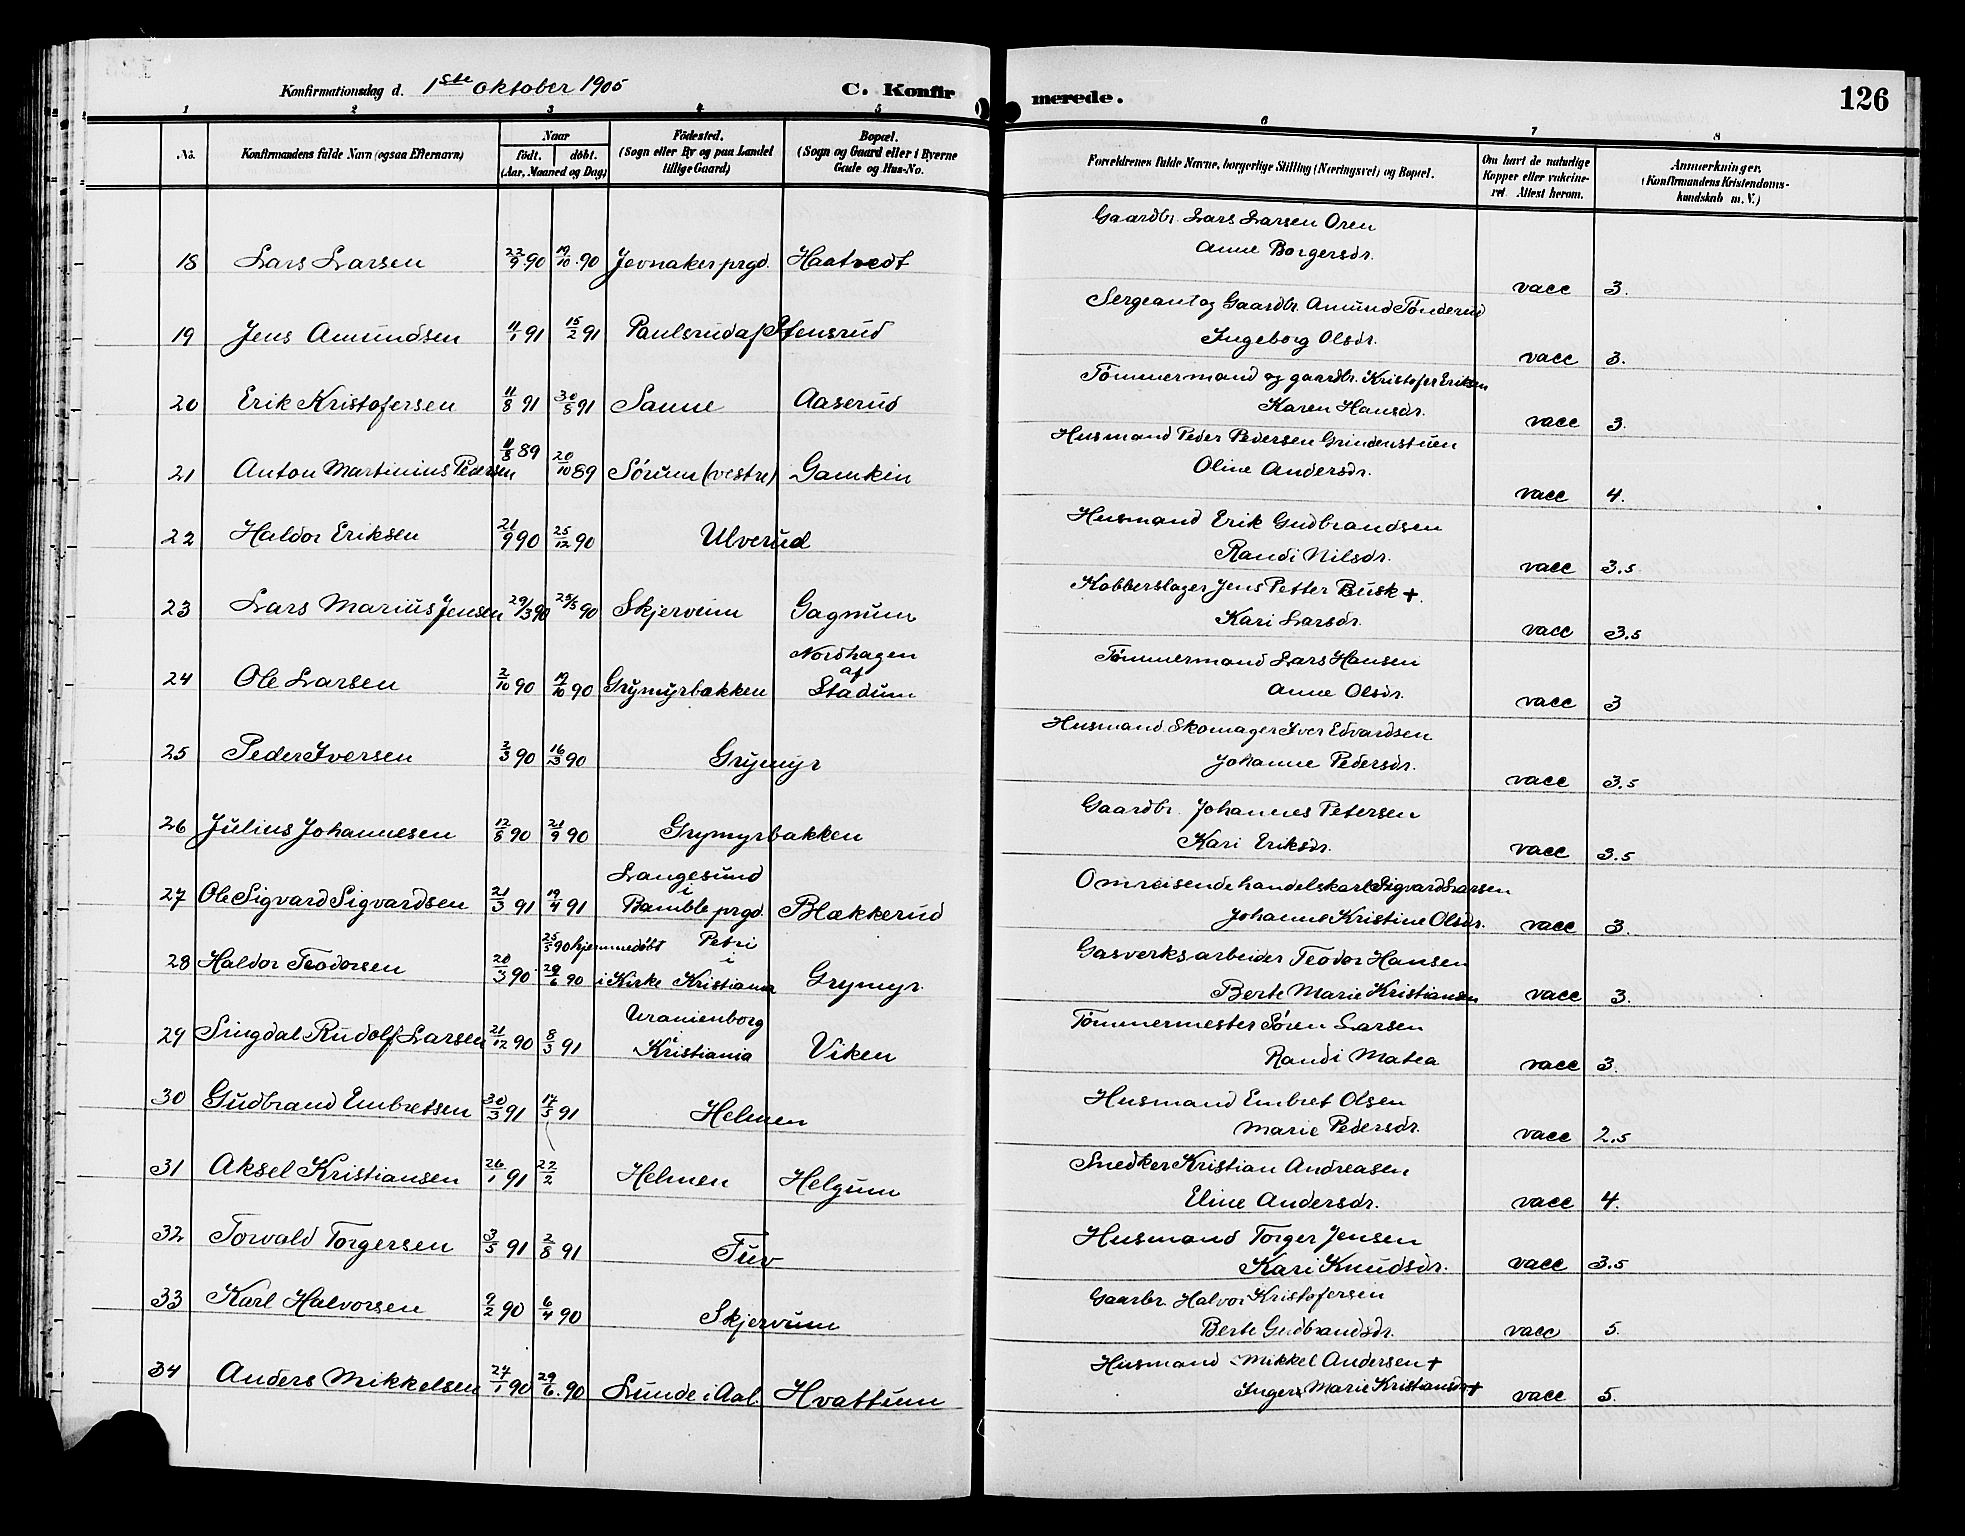 Konfirmationsdag d. 1ste oktober 1905
C. Konfirmerede.
126
1 2 3 4 5 6 7 8
No. Konfirmandens fulde Navn (ogsaa Efternavn) Naar født. døbt. (Aar, Maaned og Dag) Fødested. (Sogn eller By og paa Landet tillige Gaard) Bopæl. (Sogn og Gaard eller i Byerne Gade og Hus-No. Forældrenes fulde Navne, borgerlige Stilling (Næringsvei) og Bopæl. Om havt de naturlige Kopper eller vakcineret. Attest herom. Anmærkninger. (Konfirmandens Kristendomskundskab m. V.)
18 Lars Larsen 22/9 90 19/10 90 Jevnaker prgd. Haatvedt Gaardbr. Lars Larsen Oren
Anne Borgersdr. vacc 3.
19 Jens Amundsen 11/1 91 15/2 91 Paulsrud af Stensrud Sergeant og Gaardbr. Amund Tønderud
Ingeborg Olsdr. vacc 3.
20 Erik Kristofersen 11/8 91 30/8 91 Sanne Aaserud Tømmermand og gaardbr. Kristofer Eriksen
Karen Hansdr. vacc 3.
21 Anton Martinius Pedersen 11/8 89 20/10 89 Sørum (vestre) Gamkin Husmand Peder Pedersen Grindenstuen
Oline Andersdr. vacc 4.
22 Haldor Eriksen 21/9 90 25/12 90 Ulverud Husmand Erik Gudbrandsen
Randi Nilsdr. vacc 3.5
23 Lars Marius Jensen 29/3 90 25/5 90 Skjerveim Gagnum Kobberslager Jens Petter Busk +.
Kari Larsdr. vacc 3.5
24 Ole Larsen 2/10 90 19/10 90 Grymyrbakken Nordhagen af Stadum Tømmermand Lars Hansen
Anne Olsdr. vacc 3
25 Peder Iversen 2/3 90 16/3 90 Grymyr Husmand Skomager Iver Edvardsen
Johanne Pedersdr. vacc 3.5
26 Julius Johannesen 12/8 90 21/9 90 Grymyrbakken Gaardbr. Johannes Petersen
Kari Eriksdr. vacc 3.5
27 Ole Sigvard Sigvardsen 21/3 91 19/4 91 Langesund i Bamble prgd. Blækkerud Omreisende handelskarl Sigvard Larsen
Johanne Kristine Olsdr. vacc 3.
28 Haldor Teodorsen 20/3 90 25/5 90 hjemmedøbt 29/6 90 i Kirke Petri i Kristiania Grymyr Gasverksarbeider Teodor Hansen
Berte Marie Kristiansen vacc 3.
29 Singdal Rudolf Larsen 21/12 90 8/3 91 Uranienborg i Kristiania Viken Tømmermester Søren Larsen
Randi Matea vacc 3.
30 Gudbrand Embretsen 30/3 91 17/5 91 Helmen Husmand Embret Olsen
Marie Pedersdr. vacc 2.5
31 Aksel Kristiansen 26/1 91 22/2 Helmen Helgum Snedker Kristian Andreasen
Eline Andersdr. vacc 4.
32 Torvald Torgersen 3/5 91 2/8 91 Tuv Husmand Torger Jensen
Kari Knudsdr. vacc 3.5
33 Karl Halvorsen 9/2 90 6/4 90 Skjervum Gaarbr. Halvor Kristofersen
Berte Gudbrandsdr. vacc 5.
34 Anders Mikkelsen 27/1 90 29/6 90 Lunde i Aal. Hvattum Husmand Mikkel Andersen +
Inger Marie Kristiansdr + vacc 5.